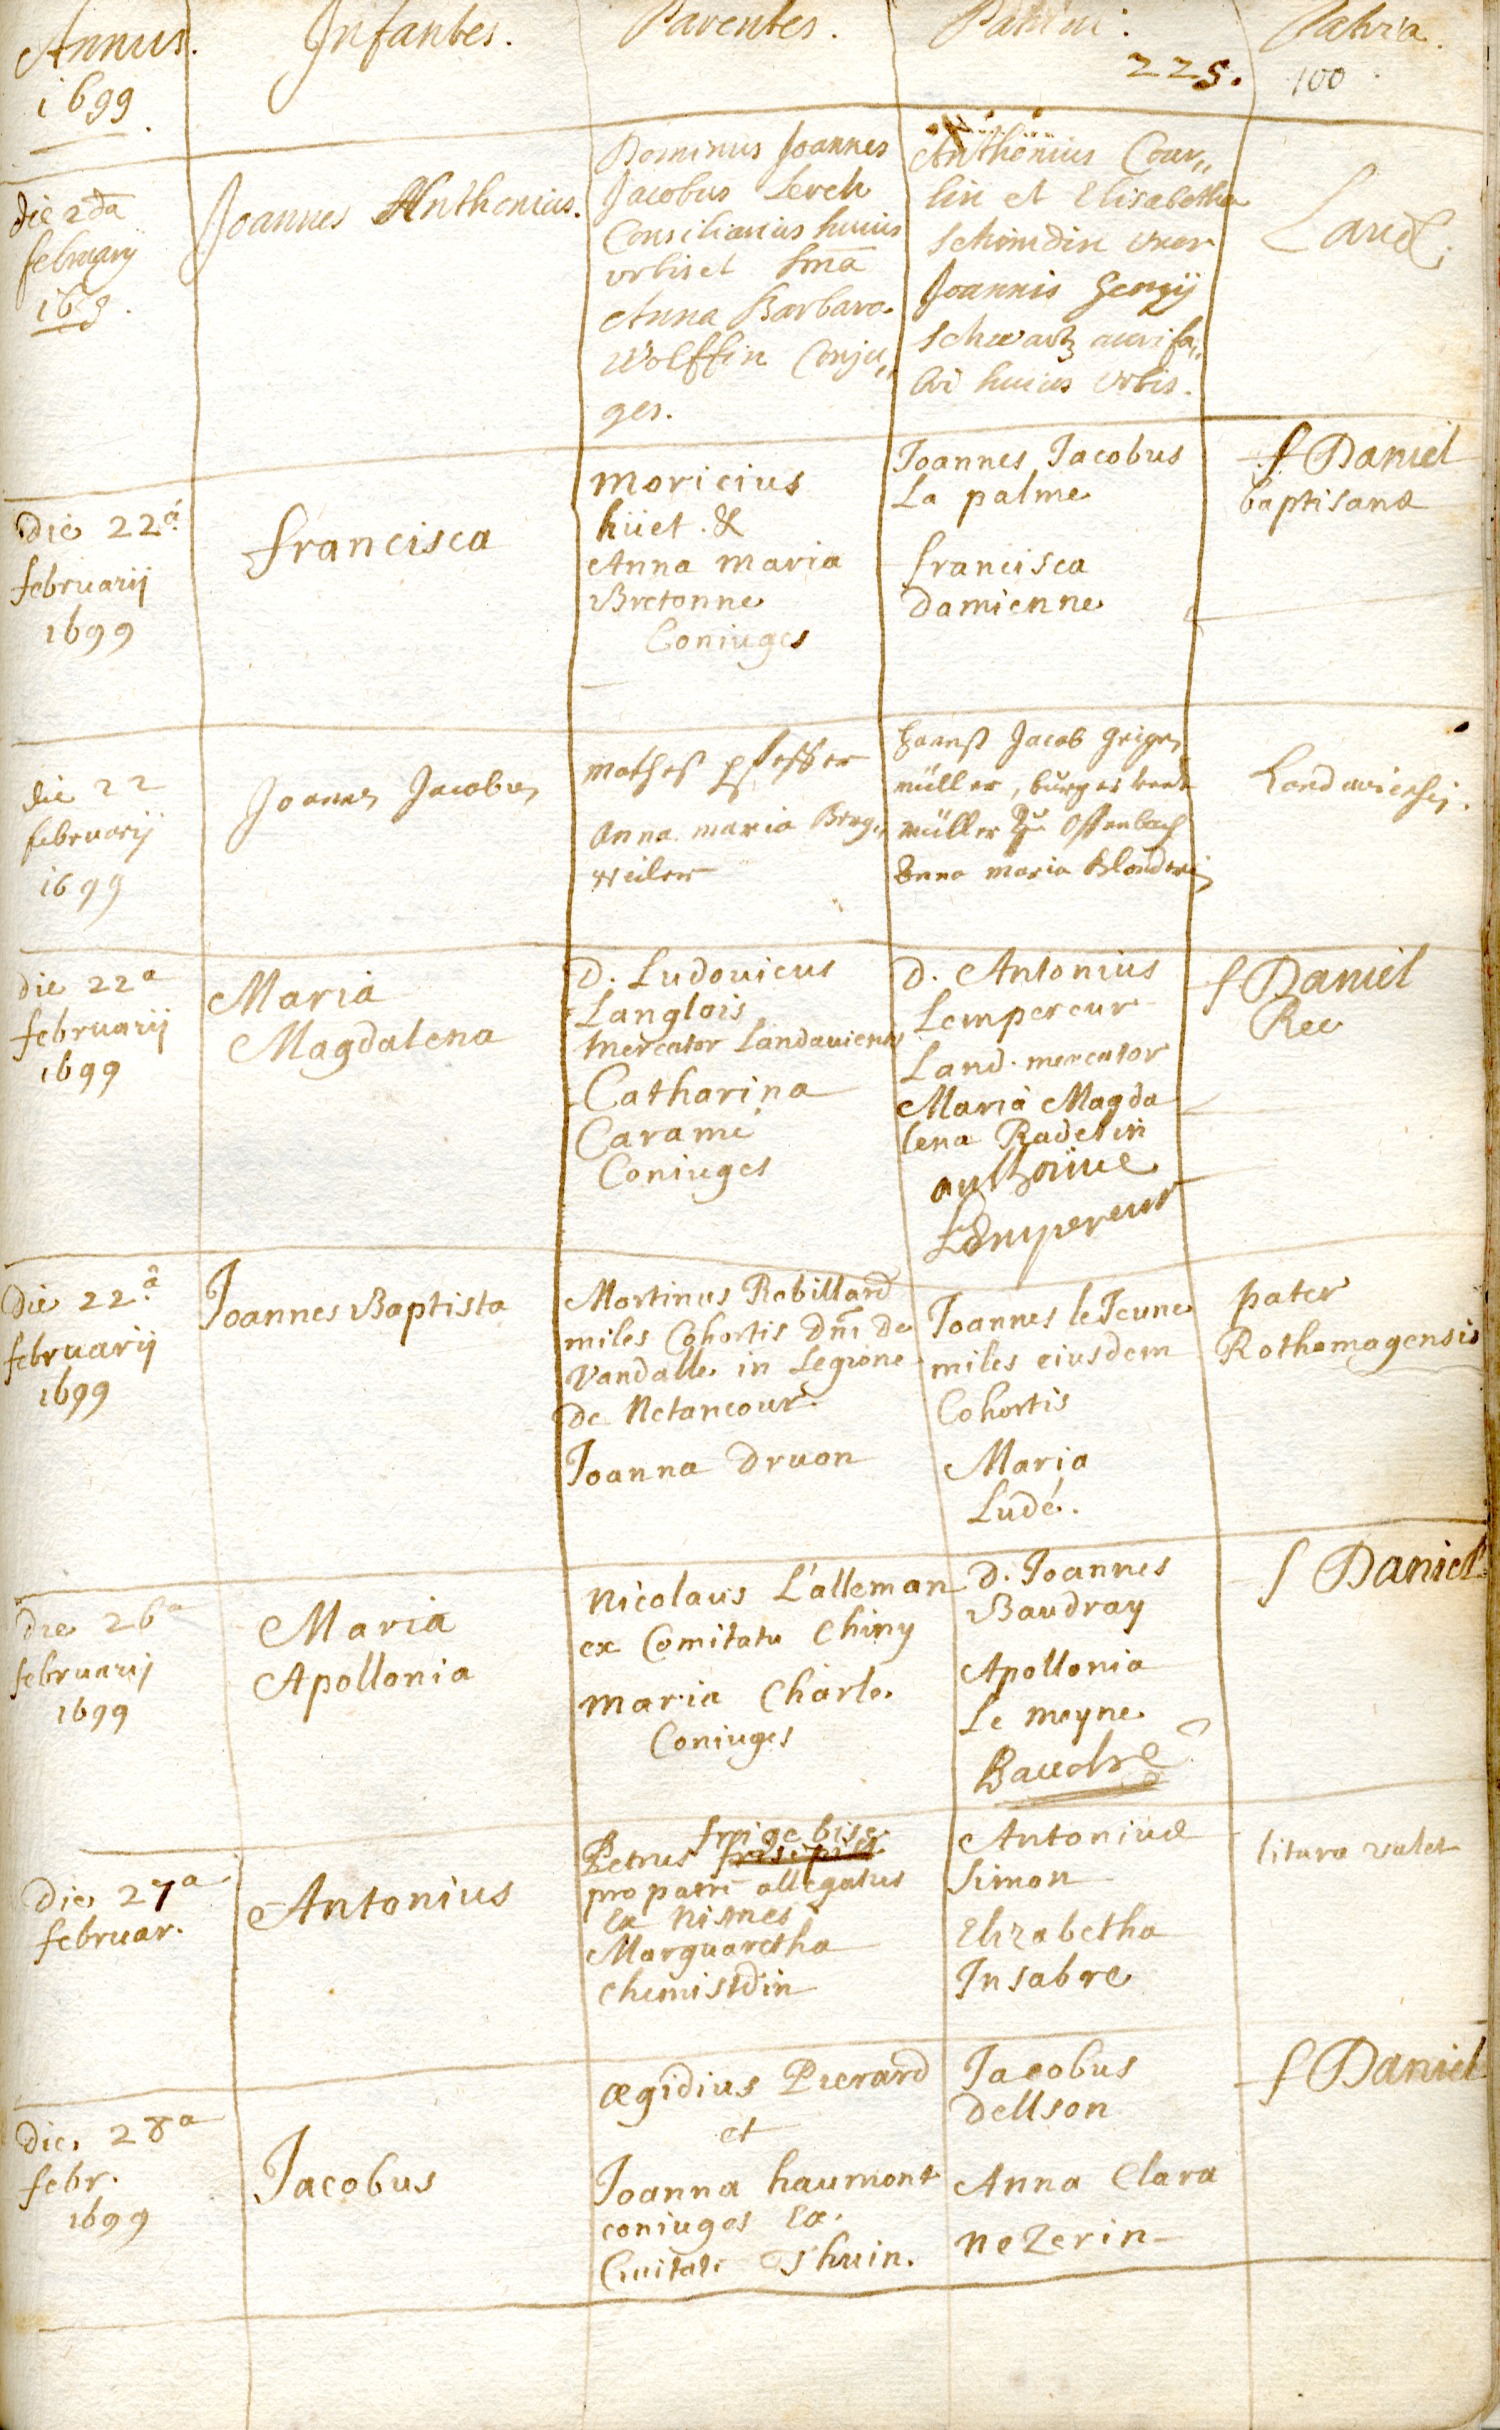 Annus.
1699
Infantes.
Parentes.
Patrini.
225.
Patria.
100
die 2da
february
169
Joannes Anthonius.
Dominus Joannes
Jacobus Lerch
Consiliarius huius
urbis et
Anna Barbara
Wolffin Conju„
ges.
Anthonius Cour„
tin et Elisabetha
Schmidin uxor
Joannis Georgij
Schwartz aurifa„
bri huius Urbis.
Land.
die 22a
februarij
1699
francisca
Moricius
hüet. &
Anna Maria
Bretonne
Coniuges
Joannes Jacobus
La palme
francisca
Damienne
f Daniel
baptisans
die 22
februarij
1699
Joannes Jacobus
Mathes pfeffer
Anna maria Berg„
weiler
Jacob Geiger
müller, burger undt
müller Zu Offenbach
Anna maria
Landaviensis.
die 22a
februarij
1699
Maria
Magdalena
D. Ludovicus
Langlois
mercator Landaviensis
Catharina
Caramé
Coniuges
D. Antonius
Lempereur
Land. mercator
Maria Magda
lena Radetin
anthoine
Lempereur
f Daniel
Rec
Die 22a
februarij
1699
Joannes Baptista
Martinus Robillard
miles Cohortis Dni De
Vandalle in Legione
De Netancour.
Joanna Druon
Joannes le Jeune
miles eiusdem
Cohortis
Maria
Ludé.
pater
Rothomagensis
Die 26a
februarij
1699
Maria
Apollonia
Nicolaus L'alleman
ex Comitatu Chiny
Maria Charle
Coniuges
D. Joannes
Baudray
Apollonia
Le moyne
Baudre
f Daniel
Die 27a
februar.
Antonius
frigebise
Petrus
pro patre allegatus
Ex Nismes
Marguaretha
chemistdin
Antonius
Simon
Elizabetha
Insabre
litura valet
Die 28a
febr.
1699
Jacobus
Ægidius Pierard
et
Joanna haumont
coniuges Ex
Civitate Thuin.
Jacobus
Dellson
Anna Clara
Nezerin
f Daniel